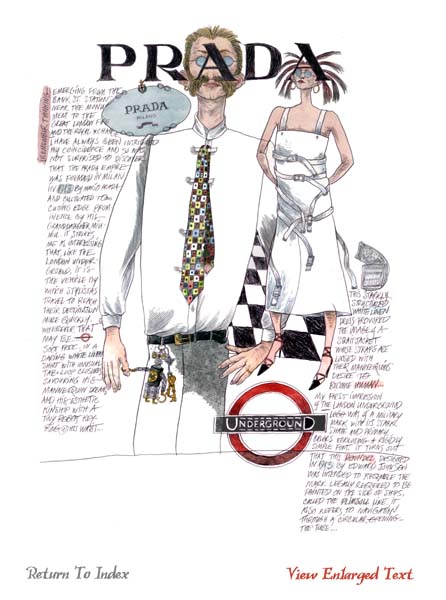 PRADA
MANNEQUIN TWINING
EMERGING FROM THE
BANK ST. STATION
NEAR THE MONUMENT
TO THE
GREAT LONDON FIRE
AND THE ROYAL XCHANGE
I HAVE ALWAYS BEEN INTRIGUED
BY COINCIDENCE AND SO WAS
NOT SURPRISED TO DISCOVER
THAT THE PRADA EMPIRE
WAS FOUNDED IN MILAN
IN 1913 BY MARIO PRADA
AND CULTIVATED ITS
CUTTING EDGE FROM
HIS
GRANDDAUGHTER MIU
MIU. IT STRIKES
ME AS INTERESTING
THAT, LIKE THE
LONDON UNDER-
GROUND, IT IS
THE VEHICLE BY
WHICH STYLISTAS
TRAVEL TO REACH
THEIR DESTINATION
MORE QUICKLY...
WHEREVER THAT
MAY BE.
SOFT PETE, IN A
DARING WHITE
SHIRT WITH UNUSUAL
TAB + LOOP CLOSURE
IS
MANNEQUIN DREAMS
AND HIS ESTHETIC
KINSHIP WITH A
TINY ROBOT KEY
PRADA
MILANO
THIS STARKLY
STRUCTURED
WHITE LINEN
DRESS BORROWED
THE IMAGE OF A
STRAIT JACKET
WHOSE STRAPS ARE
LOOSED WITH
THEIR MANNEQUINS
DESIRE TO
BECOME HUMAN.
MY FIRST IMPRESSION
OF THE LONDON UNDERGROUND
LOGO WAS OF A MILITARY
MARK WITH ITS STARK
SHAPE AND PRIMARY
COLORS ENCLOSING A RIGIDLY
SIMPLE FONT. IT TURNS OUT
THAT THIS ROUNDEL, DESIGNED
IN 1913 BY EDWARD JOHNSON
WAS INTENDED TO RESEMBLE THE
MARK LEGALLY REQUIRED TO BE
PAINTED ON THE SIDE OF SHIPS,
CALLED THE PLIMSOLL LINE. IT
ALSO REFERS TO NAVIGATION
THROUGH A CIRCULAR OPENING—
THE TUBE...
UNDERGROUND
Return To Index
View Enlarged Text